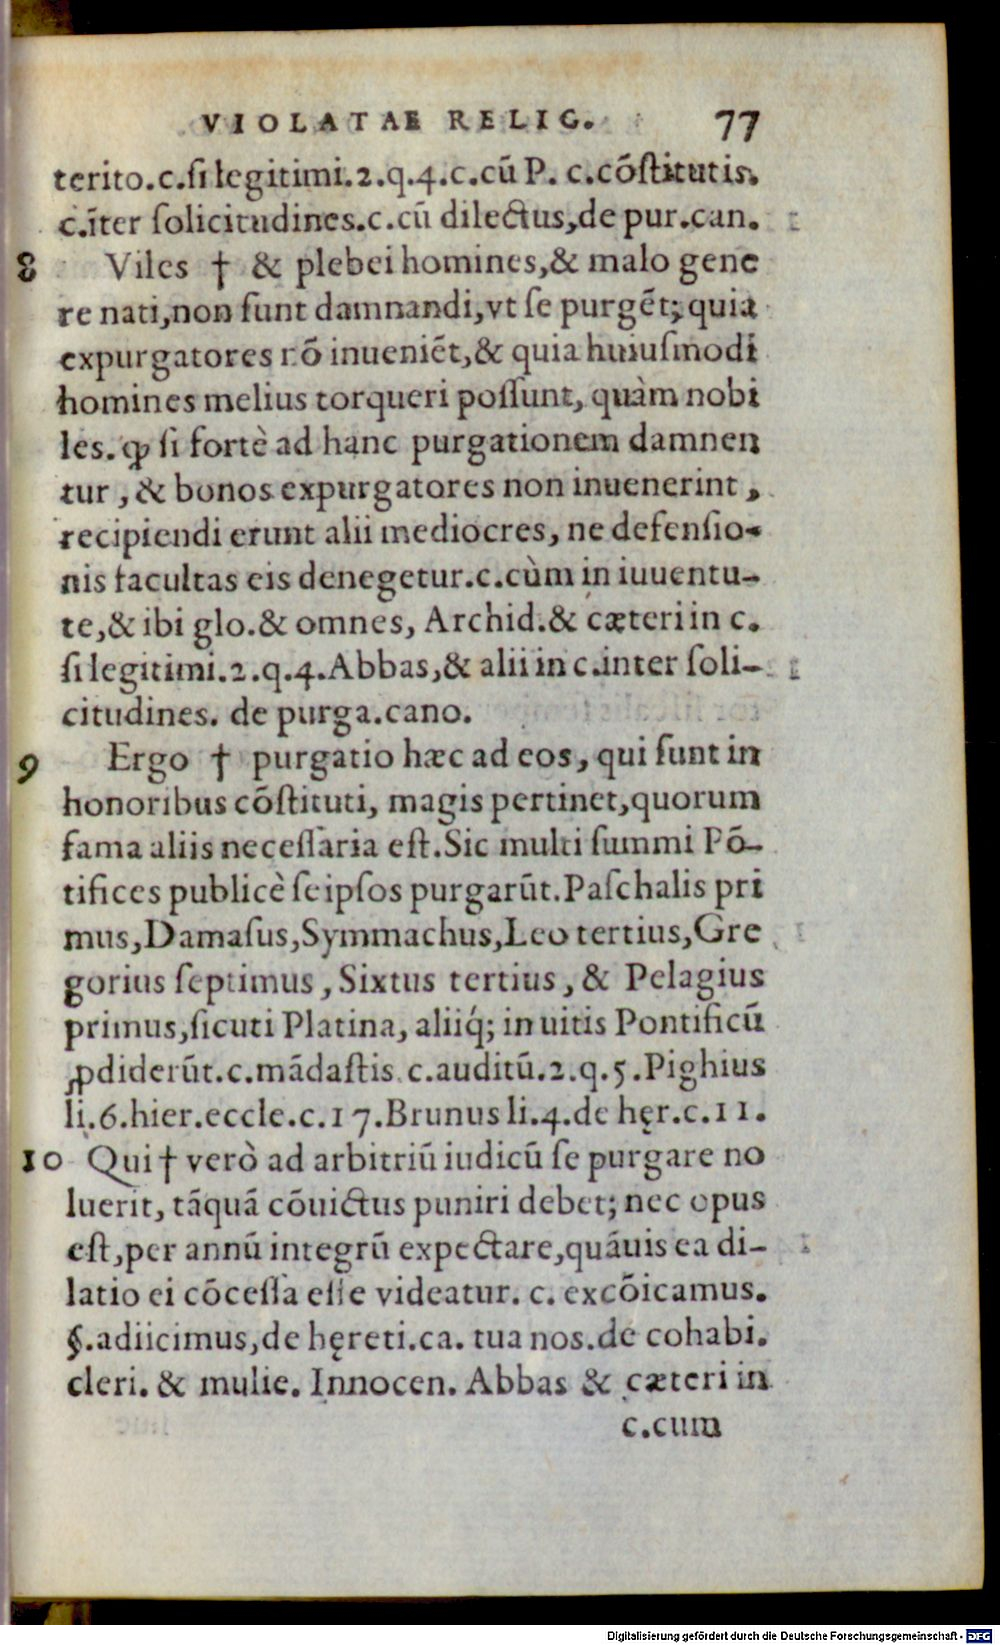 VIOLATAE RELIG. 77
terito.c.ſi legitimi.2.q.4.c.cũ P. c.cõſtitutis.
c.ĩter ſolicitudines.c.cũ dilectus,de pur.can.
8 Viles † & plebei homines,& malo gene
re nati,non ſunt damnandi,vt ſe purgẽt; quia
expurgatores nõ inueniẽt,& quia huiuſmodi
homines melius torqueri poſſunt, quàm nobi
les. ꝙ ſi fortè ad hanc purgationem damnen
tur, & bonos expurgatores non inuenerint,
recipiendi erunt alii mediocres, ne defenſio-
nis facultas eis denegetur.c.cùm in iuuentu-
te,& ibi glo.& omnes, Archid.& cæteri in c.
ſi legitimi.2.q.4.Abbas,& alii in c.inter ſoli-
citudines. de purga.cano.
9 Ergo † purgatio hæc ad eos, qui ſunt in
honoribus cõſtituti, magis pertinet,quorum
fama aliis neceſſaria eſt.Sic multi ſummi Põ-
tifices publicè ſeipſos purgarũt.Paſchalis pri
mus,Damaſus,Symmachus,Leo tertius,Gre
gorius ſeptimus, Sixtus tertius, & Pelagius
primus,ſicuti Platina, aliiq́; in uitis Pontificũ
ꝓdiderũt.c.mãdaſtis.c.auditũ.2.q.5.Pighius
li.6.hier.eccle.c.17.Brunus li.4.de hęr.c.11.
10 Qui † verò ad arbitriũ iudicũ ſe purgare no
luerit, tãquã cõuictus puniri debet; nec opus
eſt,per annũ integrũ expectare,quãuis ea di-
latio ei cõceſſa eſſe videatur. c. excõicamus.
§.adiicimus,de hęreti.ca. tua nos.de cohabi.
cleri. & mulie. Innocen. Abbas & cæteri in
c.cum
Digitalisierung gefördert durch die Deutsche Forschungsgemeinschaft - DFG